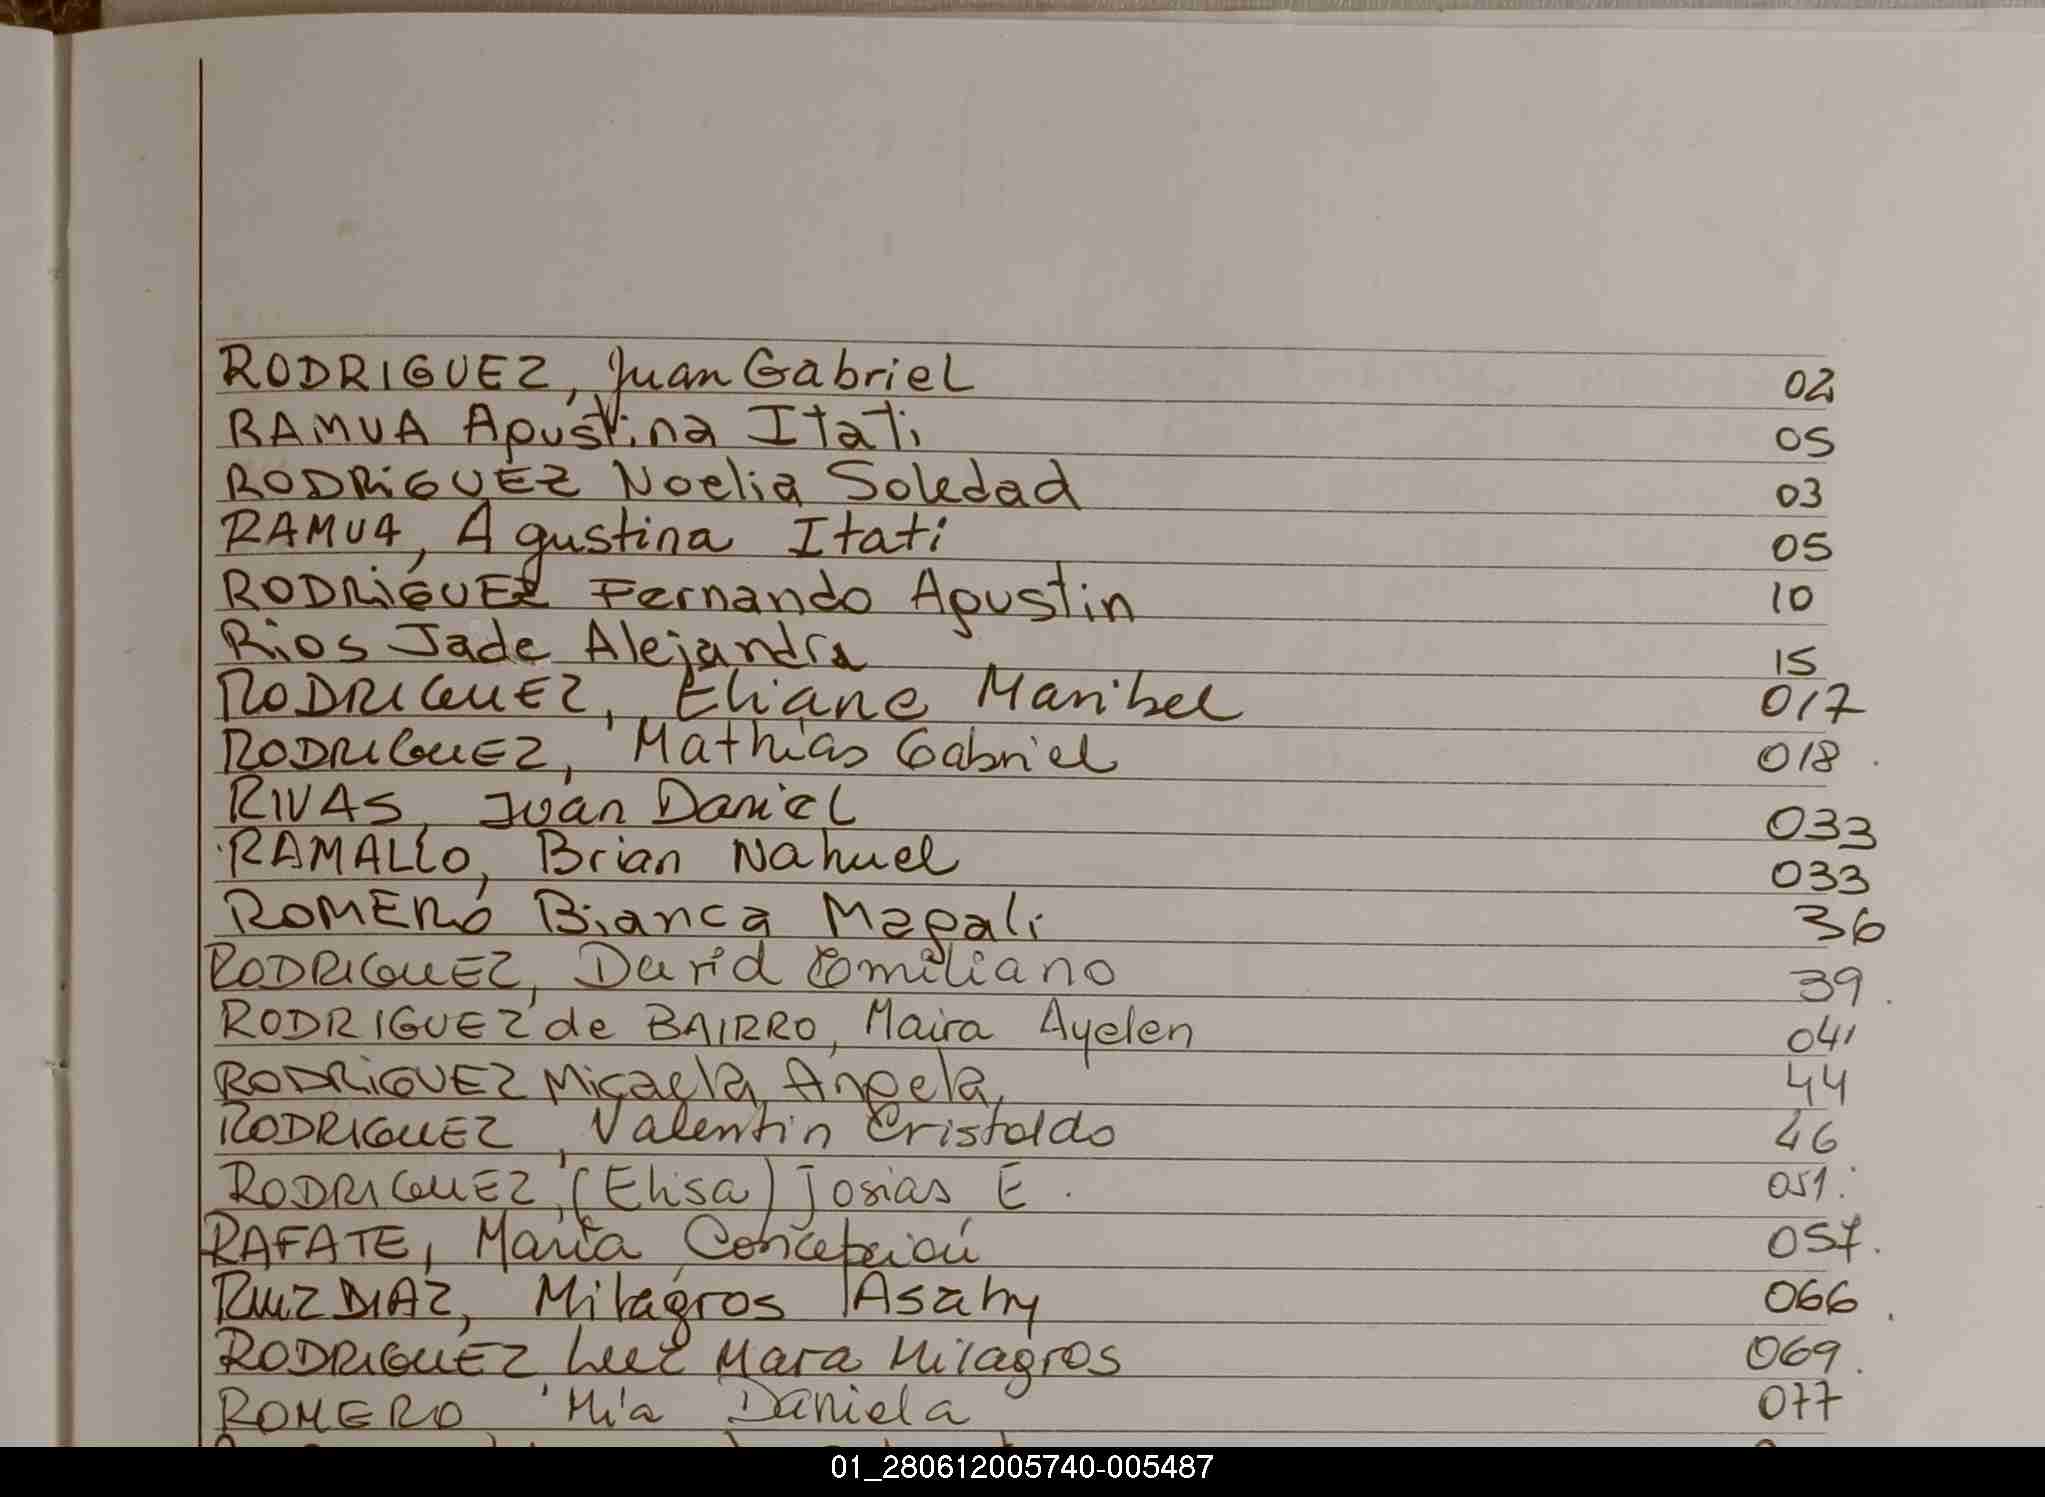 RODRIGUEZ, Juan Gabriel 02
RAMUA Agustina Itati 05
RODRiGUEZ Noelia Soledad 03
RAMUA, Agustina Itati 05
RODRiGUEZ Fernando Agustin 10
Rios Jade Alejandra 15
RODRIGUEZ, Eliane Maribel 017
RODRIGUEZ, Mathias Gabriel 018
RIVAS, Juan Daniel 033
RAMALLO, Brian Nahuel 033
ROMERO Bianca Magali 36
RODRIGUEZ, David Emiliano 39
RODRIGUEZ de BAIRRO, Maira Ayelen 041
RODRiGUEZ Micaela Angela 44
RODRIGUEZ, Valentin Cristaldo 46
RODRIGUEZ, (Elisa) Josias E. 051
RAFATE, María Concepción 057
RUIZ DIAZ, Milagros Asahy 066
RODRIGUEZ Luz Mara Milagros 069
ROMERO Mía Daniela 077
01_280612005740-005487